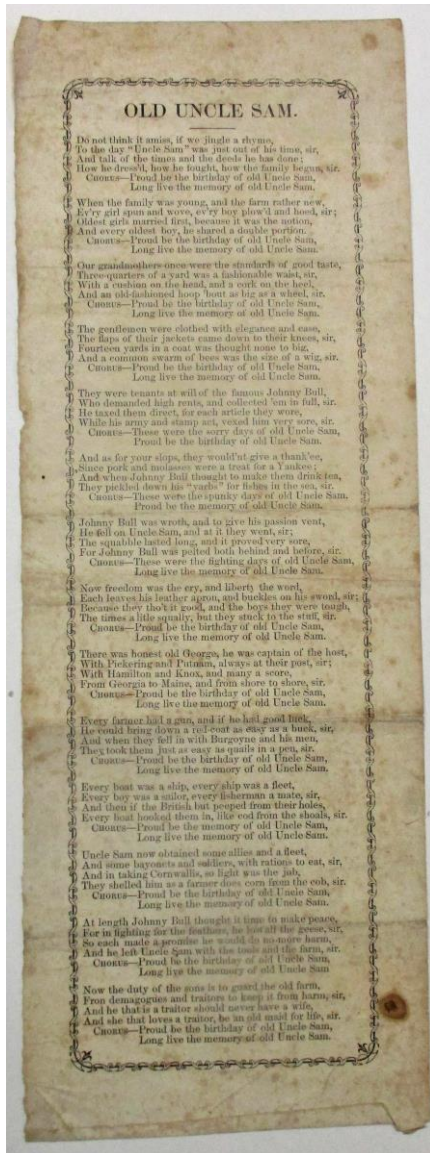 OLD UNCLE SAM.
Do not think it amiss, if we jingle a rhyme,
To the day "Uncle Sam" was just out of his time, sir,
And talk of the times and the deeds he has done;
How he dress'd, how he fought, how the family begun, sir.
CHORUS—Proud be the birthday of old Uncle Sam,
Long live the memory of old Uncle Sam.
When the family was young, and the farm rather new,
Ev'ry girl spun and wove, ev'ry boy plow'd and hoed, sir;
Oldest girls married first, because it was the notion,
And every oldest boy, he shared a double portion.
CHORUS—Proud be the birthday of old Uncle Sam,
Long live the memory of old Uncle Sam.
Our grandmothers once were the standards of good taste,
Three-quarters of a yard was a fashionable waist, sir,
With a cushion on the head, and a cork on the heel,
And an old-fashioned hoop 'bout as big as a wheel, sir.
CHORUS—Proud be the birthday of old Uncle Sam,
Long live the memory of old Uncle Sam.
The gentlemen were clothed with elegance and ease,
The flaps of their jackets came down to their knees, sir,
Fourteen yards in a coat was thought none to big,
And a common swarm of bees was the size of a wig, sir.
CHORUS—Proud be the birthday of old Uncle Sam,
Long live the memory of old Uncle Sam.
They were tenants at will of the famous Johnny Bull,
Who demanded high rents, and collected 'em in full, sir.
He taxed them direct, for each article they wore,
While his army and stamp act, vexed him very sore, sir.
CHORUS—These were the sorry days of old Uncle Sam,
Proud be the birthday of old Uncle Sam.
And as for your slops, they would'nt give a thank'ee,
Since pork and molasses were a treat for a Yankee;
And when Johnny Bull thought to make them drink tea,
They pickled down his "yarbs" for fishes in the sea, sir.
CHORUS—These were the spunky days of old Uncle Sam.
Proud be the memory of old Uncle Sam.
Johnny Bull was wroth, and to give his passion vent,
He fell on Uncle Sam, and at it they went, sir;
The squabble lasted long, and it proved very sore,
For Johnny Bull was pelted both behind and before, sir.
CHORUS—These were the fighting days of old Uncle Sam,
Long live the memory of old Uncle Sam.
Now freedom was the cry, and liberty the word,
Each leaves his leather apron, and buckles on his sword, sir;
Because they tho't it good, and the boys they were tough,
The times a litle squally, but they stuck to the stuff, sir.
CHORUS—Proud be the birthday of old Uncle Sam,
Long live the memory of old Uncle Sam.
There was honest old George, he was captain of the host,
With Pickering and Putnam, always at their post, sir;
With Hamilton and Knox, and many a score,
From Georgia to Maine, and from shore to shore, sir.
CHORUS—Proud be the birthday of old Uncle Sam,
Long live the memory of old Uncle Sam.
Every farmer had a gun, and if he had good luck,
He could bring down a red-coat as easy as a buck, sir,
And when they fell in with Burgoyne and his men,
They took them just as easy as quails in a pen, sir.
CHORUS—Proud be the birthday of old Uncle Sam,
Long live the memory of old Uncle Sam.
Every boat was a ship, every ship was a fleet,
Every boy was a sailor, every fisherman a mate, sir,
And then if the British but peeped from their holes,
Every boat hooked them in, like cod from the shoals, sir.
CHORUS—Proud be the birthday of old Uncle Sam,
Long live the memory of old Uncle Sam.
Uncle Sam now obtained some allies and a fleet,
And some bayonets and soldiers, with rations to eat, sir,
And in taking Cornwallis, so light was the job,
They shelled him as a farmer does corn from the cob, sir.
CHORUS—Proud be the birthday of old Uncle Sam,
Long live the memory of old Uncle Sam.
At length Johnny Bull thought it time to make peace,
For in fighting for the feathers, he lost all the geese, sir,
So each made a promise he would do no more harm,
And he left Uncle Sam with the tools and the farm, sir.
CHORUS—Proud be the birthday of old Uncle Sam,
Long live the memory of old Uncle Sam
Now the duty of the sons is to guard the old farm,
Fron demagogues and traitors to keep it from harm, sir,
And he that is a traitor should never have a wife,
And she that loves a traitor, be an old maid for life, sir.
CHORUS—Proud be the birthday of old Uncle Sam,
Long live the memory of old Uncle Sam.